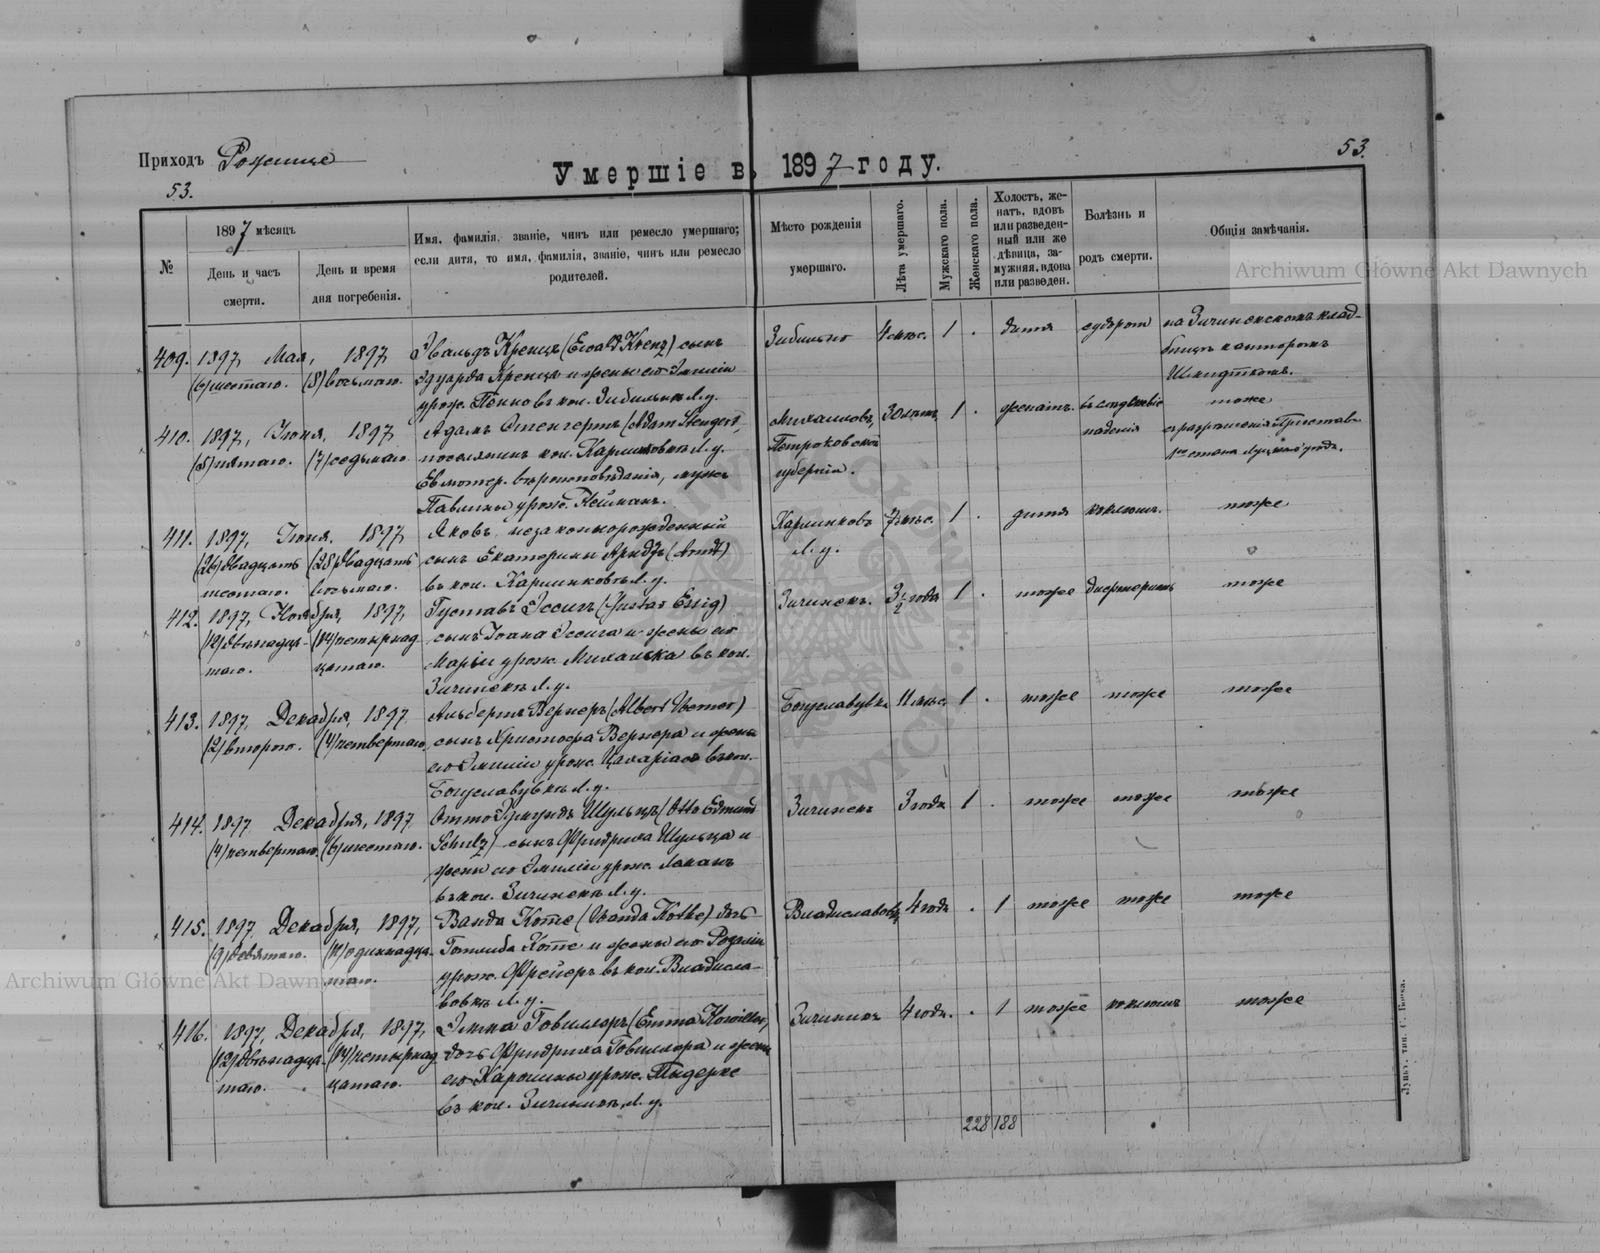 Приходъ Рожище
53.
Умершіе въ 1897 году.
53.
№
1897 мѣсяцъ
День и часъ
смерти.
День и время
дня погребенія.
Имя, фамилія, званіе, чинъ или ремесло умершаго;
если дитя, то имя, фамилія, званіе, чинъ или ремесло
родителей.
Мѣсто рожденія
умершаго.
Лѣта умершаго.
Мужскаго пола.
Женскаго пола.
Холостъ, же-
натъ, вдовъ
или разведен-
ный или же
дѣвица, за-
мужняя, вдова
или разведен.
Болѣзнь и
родъ смерти.
Общія замѣчанія.
409. 1897, Мая, 1897
(6) шестаго. (8) восьмаго.
Эвальдъ Кренцъ (Ewald Krenz) сынъ
Эдуарда Кренца и жены его Эмиліи
урож. въ кол. Л. у.
4 мѣс. 1 . дитя судорог
на Зичинскомъ клад-
бищѣ канторомъ
Шмидткомъ.
410. 1897, Іюня, 1897
(5) пятаго. (7) седьмаго.
Адамъ Стенгертъ (Adam Stengert),
поселянинъ кол. Л. у.
Ев. лютер. вѣроисповѣданія, мужъ
Павлины урож. Нейманъ.
Михаиловъ,
Петроковской
губерніи.
30 лѣтъ 1 . женатъ. въ слѣдствіе
паденія
тоже
съ разрѣшенія Пристава
1го стана Луцкаго уѣзда.
411. 1897, Іюня, 1897
(26) двадцать (28) двадцать
шестаго. восьмаго.
Яковъ, незаконнорожденный
сынъ Екатерины Арндтъ (Arndt)
въ кол. Л. у.
Л. у.
7 мѣс. 1 . дитя коклюшъ. тоже
412. 1897, Ноября, 1897,
(12) двѣнадца- (14) четырнад
таго. цатаго.
Густавъ Эссигъ (Gustav Essig)
сынъ Іоана Эссига и жены его
Маріи урож. въ кол.
Л. у.
3½ года 1 . тоже дифтеритъ тоже
413. 1897, Декабря, 1897
(2) втораго. (4) четвертаго.
Альбертъ Вернеръ (Albert Werner)
сынъ Христофа Вернера и жены
его Эмиліи урож. Цахаріасъ въ кол.
Богуславувкѣ Л. у.
Богуславувка 11 мѣс. 1 . тоже тоже тоже
414. 1897 Декабря, 1897
(4) четвертаго. (6) шестаго.
Отто Эдмундъ Шульцъ (Otto Edmund
Schulz) сынъ Фридриха Шульца и
жены его Эмиліи урож.
въ кол. Л. у.
3 года 1 . тоже тоже тоже
415. 1897 Декабря, 1897,
(9) девятаго. (11) одиннадца-
таго.
Ванда Котке (Wanda Kotke) дочь
Готлиба Котке и жены его Розаліи
урож. Фрейеръ въ кол. Владисла-
вовкѣ Л. у.
4 года . 1 тоже тоже тоже
416. 1897, Декабря, 1897,
(12) двѣнадца (14) четырнад
таго. цатаго.
Эмма Говиллеръ (Emma
дочь Фридриха Говиллера и жены
его Каролины урож.
въ кол. Л. у.
4 года . 1 тоже коклюшъ тоже
228 188
Archiwum Główne Akt Dawnych
Archiwum Główne Akt Dawnych